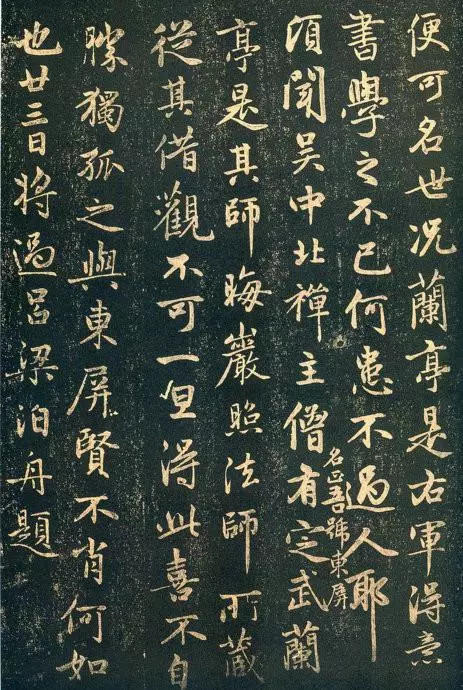 便可名世況蘭亭是右軍得意
書學之不已何患不過人耶
頃聞吳中北禪主僧有定武蘭
名正吾號東屏
亭是其師晦巖照法師所藏
從其借觀不可一旦得此喜不自
勝獨孤之與東屏賢不肖何如
也廿三日將過呂梁泊舟題